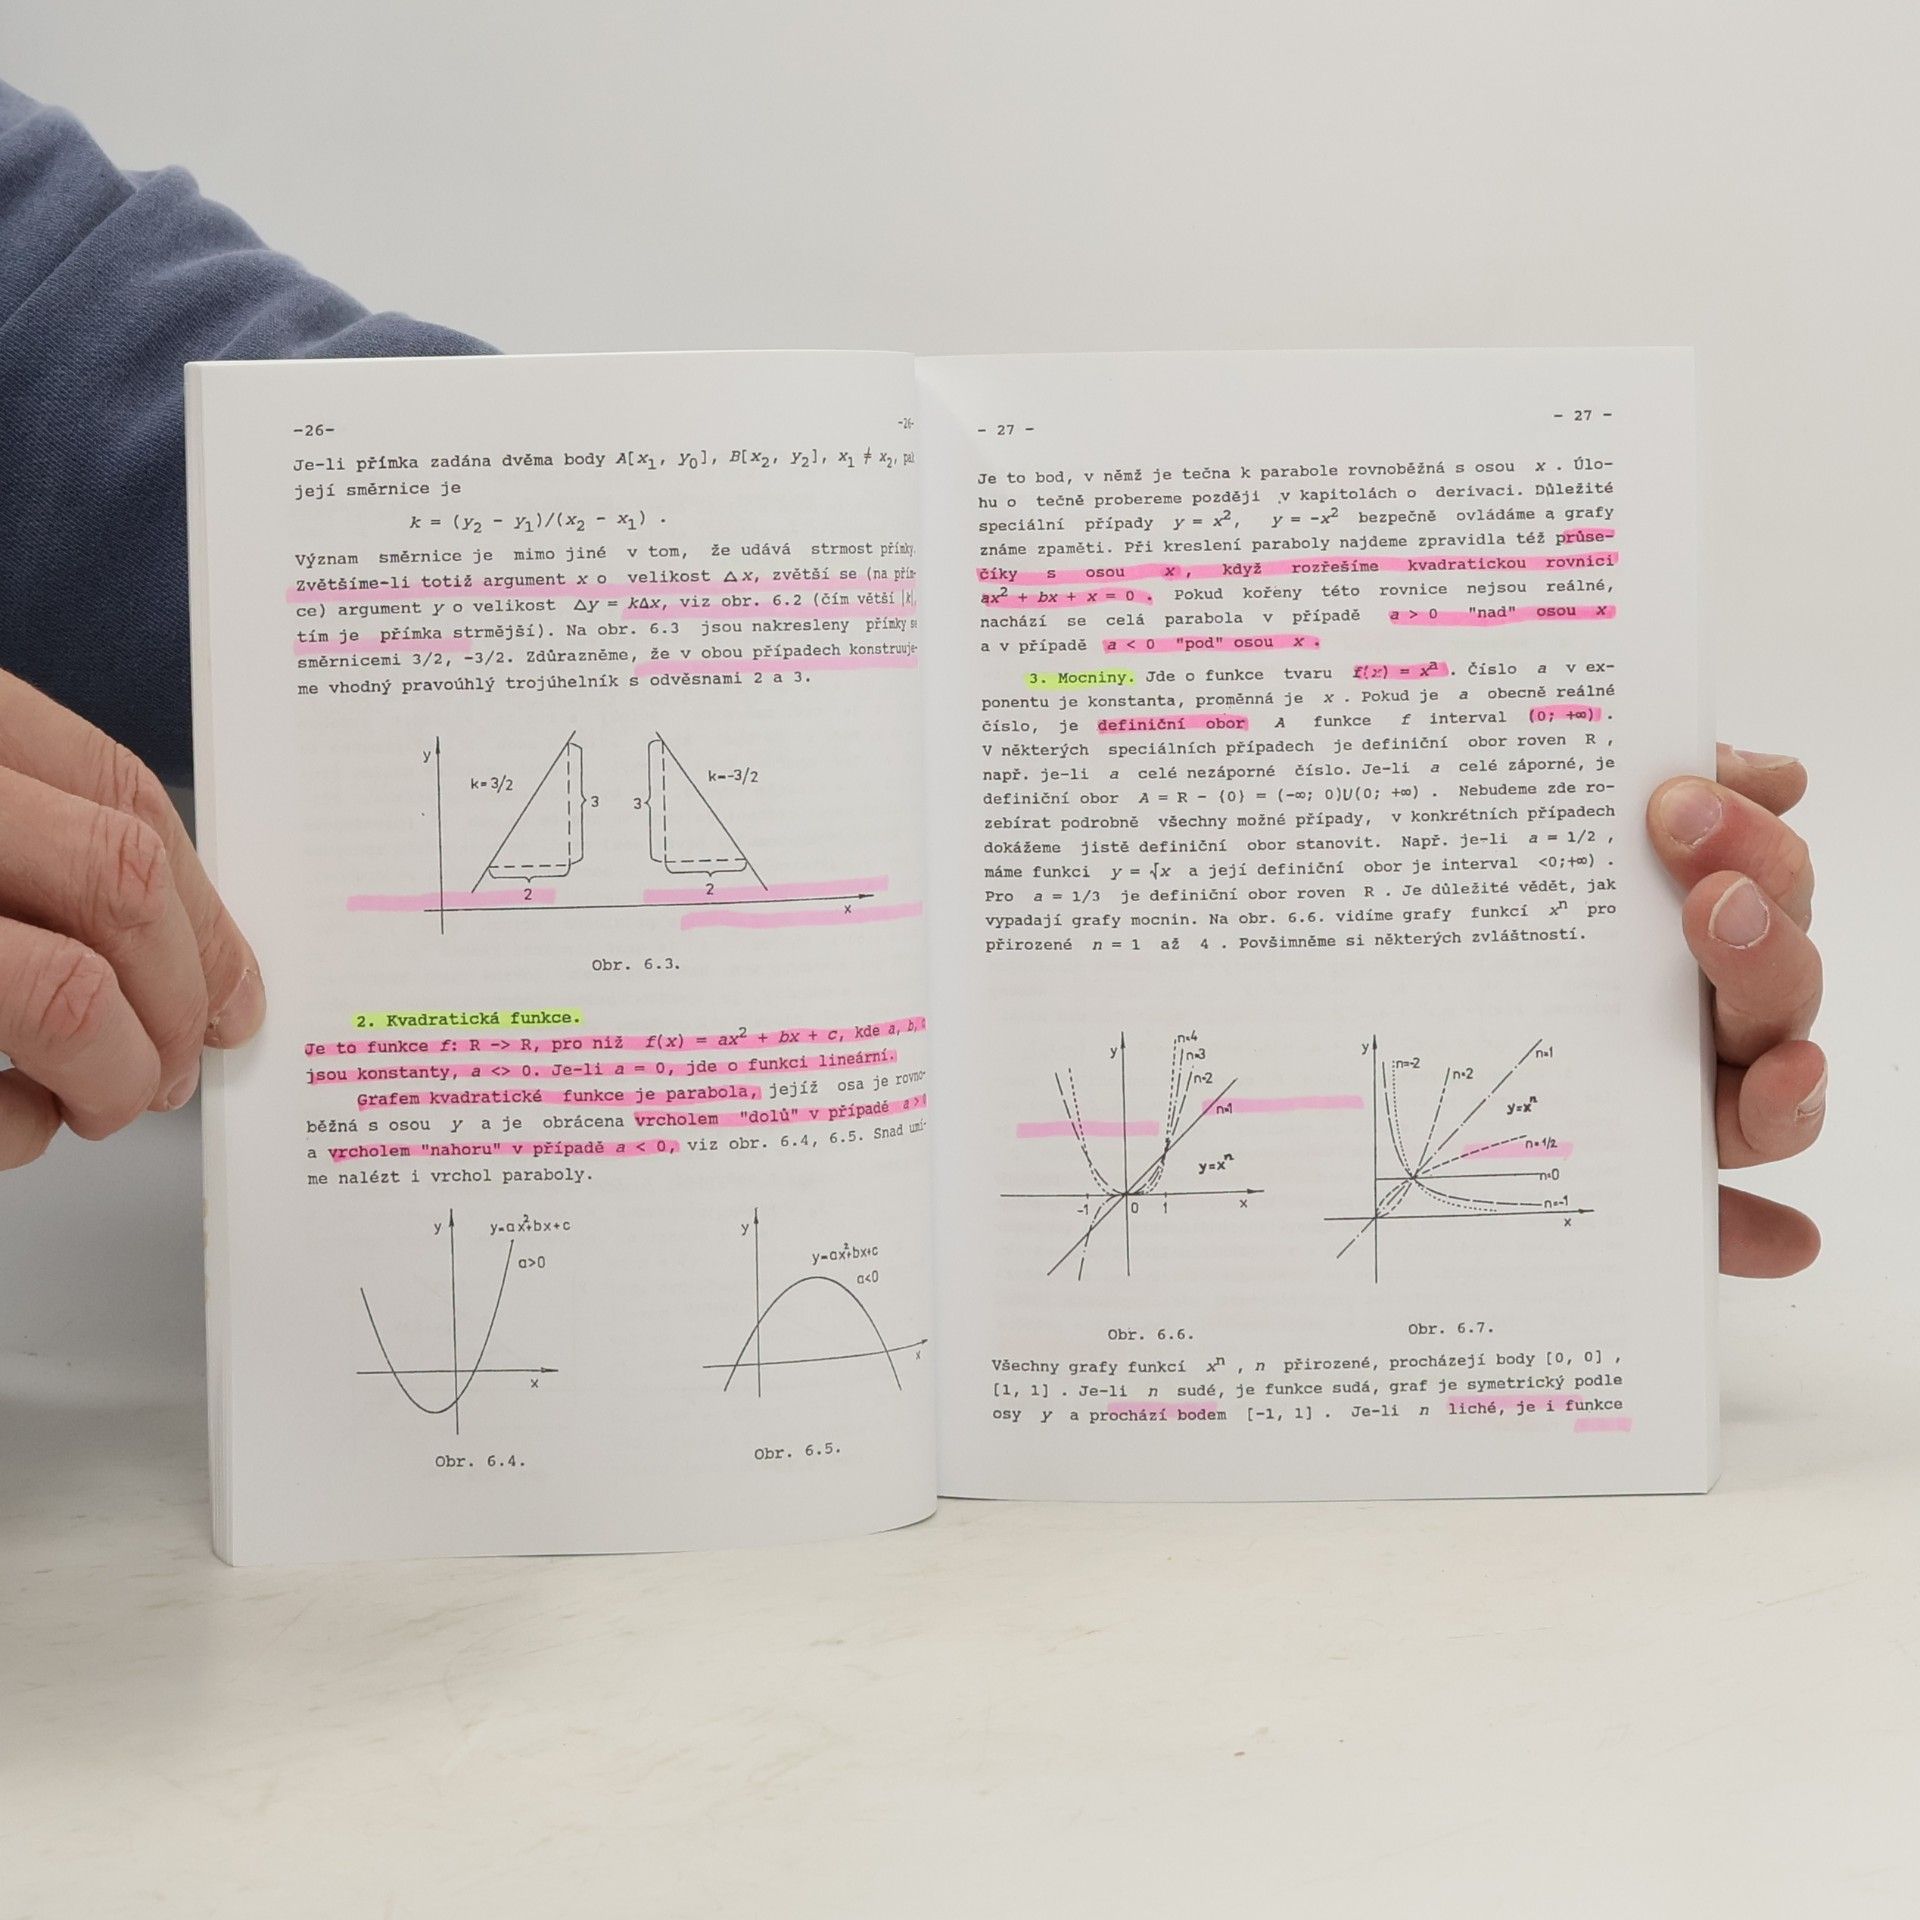 -26-
-26-
Je-li přímka zadána dvěma body A[x₁, y₀], B[x₂, y₂], x₁ ≠ x₂, pak
její směrnice je
k = (y₂ - y₁)/(x₂ - x₁) .
Význam směrnice je mimo jiné v tom, že udává strmost přímky.
Zvětšíme-li totiž argument x o velikost Δx, zvětší se (na přím-
ce) argument y o velikost Δy = kΔx, viz obr. 6.2 (čím větší |k|,
tím je přímka strmější). Na obr. 6.3 jsou nakresleny přímky se
směrnicemi 3/2, -3/2. Zdůrazněme, že v obou případech konstruuje-
me vhodný pravoúhlý trojúhelník s odvěsnami 2 a 3.
y
k=3/2
3
2
3
k=-3/2
2
x
Obr. 6.3.
2. Kvadratická funkce.
Je to funkce f: R -> R, pro niž f(x) = ax² + bx + c, kde a, b, c
jsou konstanty, a <> 0. Je-li a = 0, jde o funkci lineární.
Grafem kvadratické funkce je parabola, jejíž osa je rovno-
běžná s osou y a je obrácena vrcholem "dolů" v případě a > 0
a vrcholem "nahoru" v případě a < 0, viz obr. 6.4, 6.5. Snad umí-
me nalézt i vrchol paraboly.
y
y=ax²+bx+c
a>0
x
Obr. 6.4.
y
y=ax²+bx+c
a<0
x
Obr. 6.5.
- 27 -
- 27 -
Je to bod, v němž je tečna k parabole rovnoběžná s osou x . Úlo-
hu o tečně probereme později v kapitolách o derivaci. Důležité
speciální případy y = x², y = -x² bezpečně ovládáme a grafy
známe zpaměti. Při kreslení paraboly najdeme zpravidla též průse-
číky s osou x , když rozřešíme kvadratickou rovnici
ax² + bx + x = 0 . Pokud kořeny této rovnice nejsou reálné,
nachází se celá parabola v případě a > 0 "nad" osou x
a v případě a < 0 "pod" osou x .
3. Mocniny. Jde o funkce tvaru f(x) = xᵃ . Číslo a v ex-
ponentu je konstanta, proměnná je x . Pokud je a obecně reálné
číslo, je definiční obor A funkce f interval (0; +∞) .
V některých speciálních případech je definiční obor roven R ,
např. je-li a celé nezáporné číslo. Je-li a celé záporné, je
definiční obor A = R - {0} = (-∞; 0)U(0; +∞) . Nebudeme zde ro-
zebírat podrobně všechny možné případy, v konkrétních případech
dokážeme jistě definiční obor stanovit. Např. je-li a = 1/2 ,
máme funkci y = √x a její definiční obor je interval <0;+∞) .
Pro a = 1/3 je definiční obor roven R . Je důležité vědět, jak
vypadají grafy mocnin. Na obr. 6.6. vidíme grafy funkcí xⁿ pro
přirozené n = 1 až 4 . Povšimněme si některých zvláštností.
y
n=4
n=3
n=2
n=1
y=xⁿ
-1
0
1
x
Obr. 6.6.
y
n=-2
n=2
n=1
y=xⁿ
n=1/2
n=0
n=-1
x
Obr. 6.7.
Všechny grafy funkcí xⁿ , n přirozené, procházejí body [0, 0] ,
[1, 1] . Je-li n sudé, je funkce sudá, graf je symetrický podle
osy y a prochází bodem [-1, 1] . Je-li n liché, je i funkce